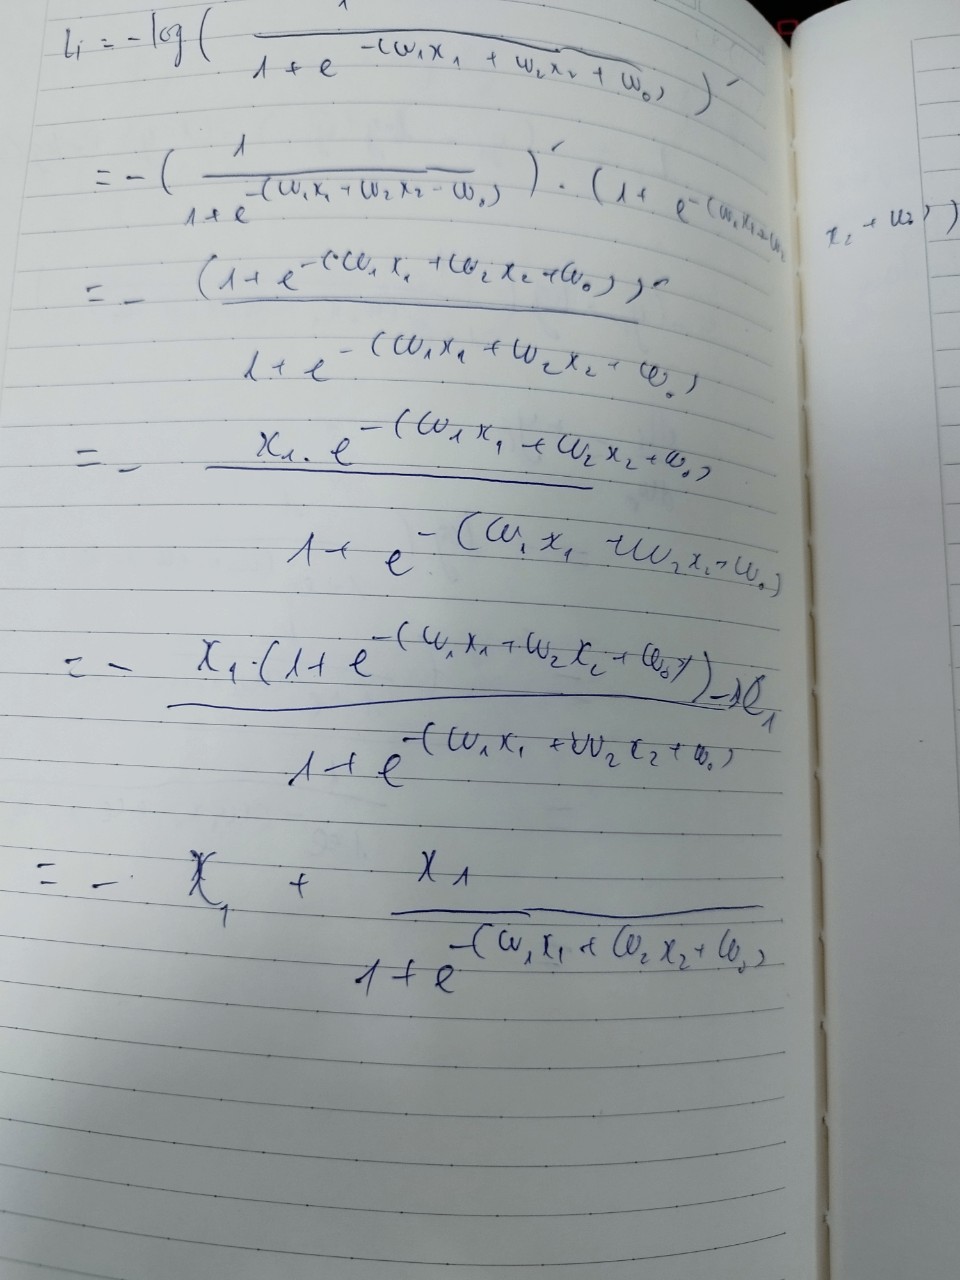 L₁ = - log( 1 / (1 + e^-(w₁x₁ + w₂x₂ + w₀) )′
= - ( 1 / (1 + e^-(w₁x₁ + w₂x₂ - w₀) )′ . (1 + e^-(w₁x₁ + w₂ x₂ + w₀))
= - (1 + e^-(w₁x₁ + w₂x₂ + w₀))′ / (1 + e^-(w₁x₁ + w₂x₂ + w₀)
= - x₁ . e^-(w₁x₁ + w₂x₂ + w₀) / (1 + e^-(w₁x₁ + w₂x₂ + w₀)
= - x₁ . (1 + e^-(w₁x₁ + w₂x₂ + w₀)) - x₁ / (1 + e^-(w₁x₁ + w₂x₂ + w₀)
= - x₁ + x₁ / (1 + e^-(w₁x₁ + w₂x₂ + w₀)